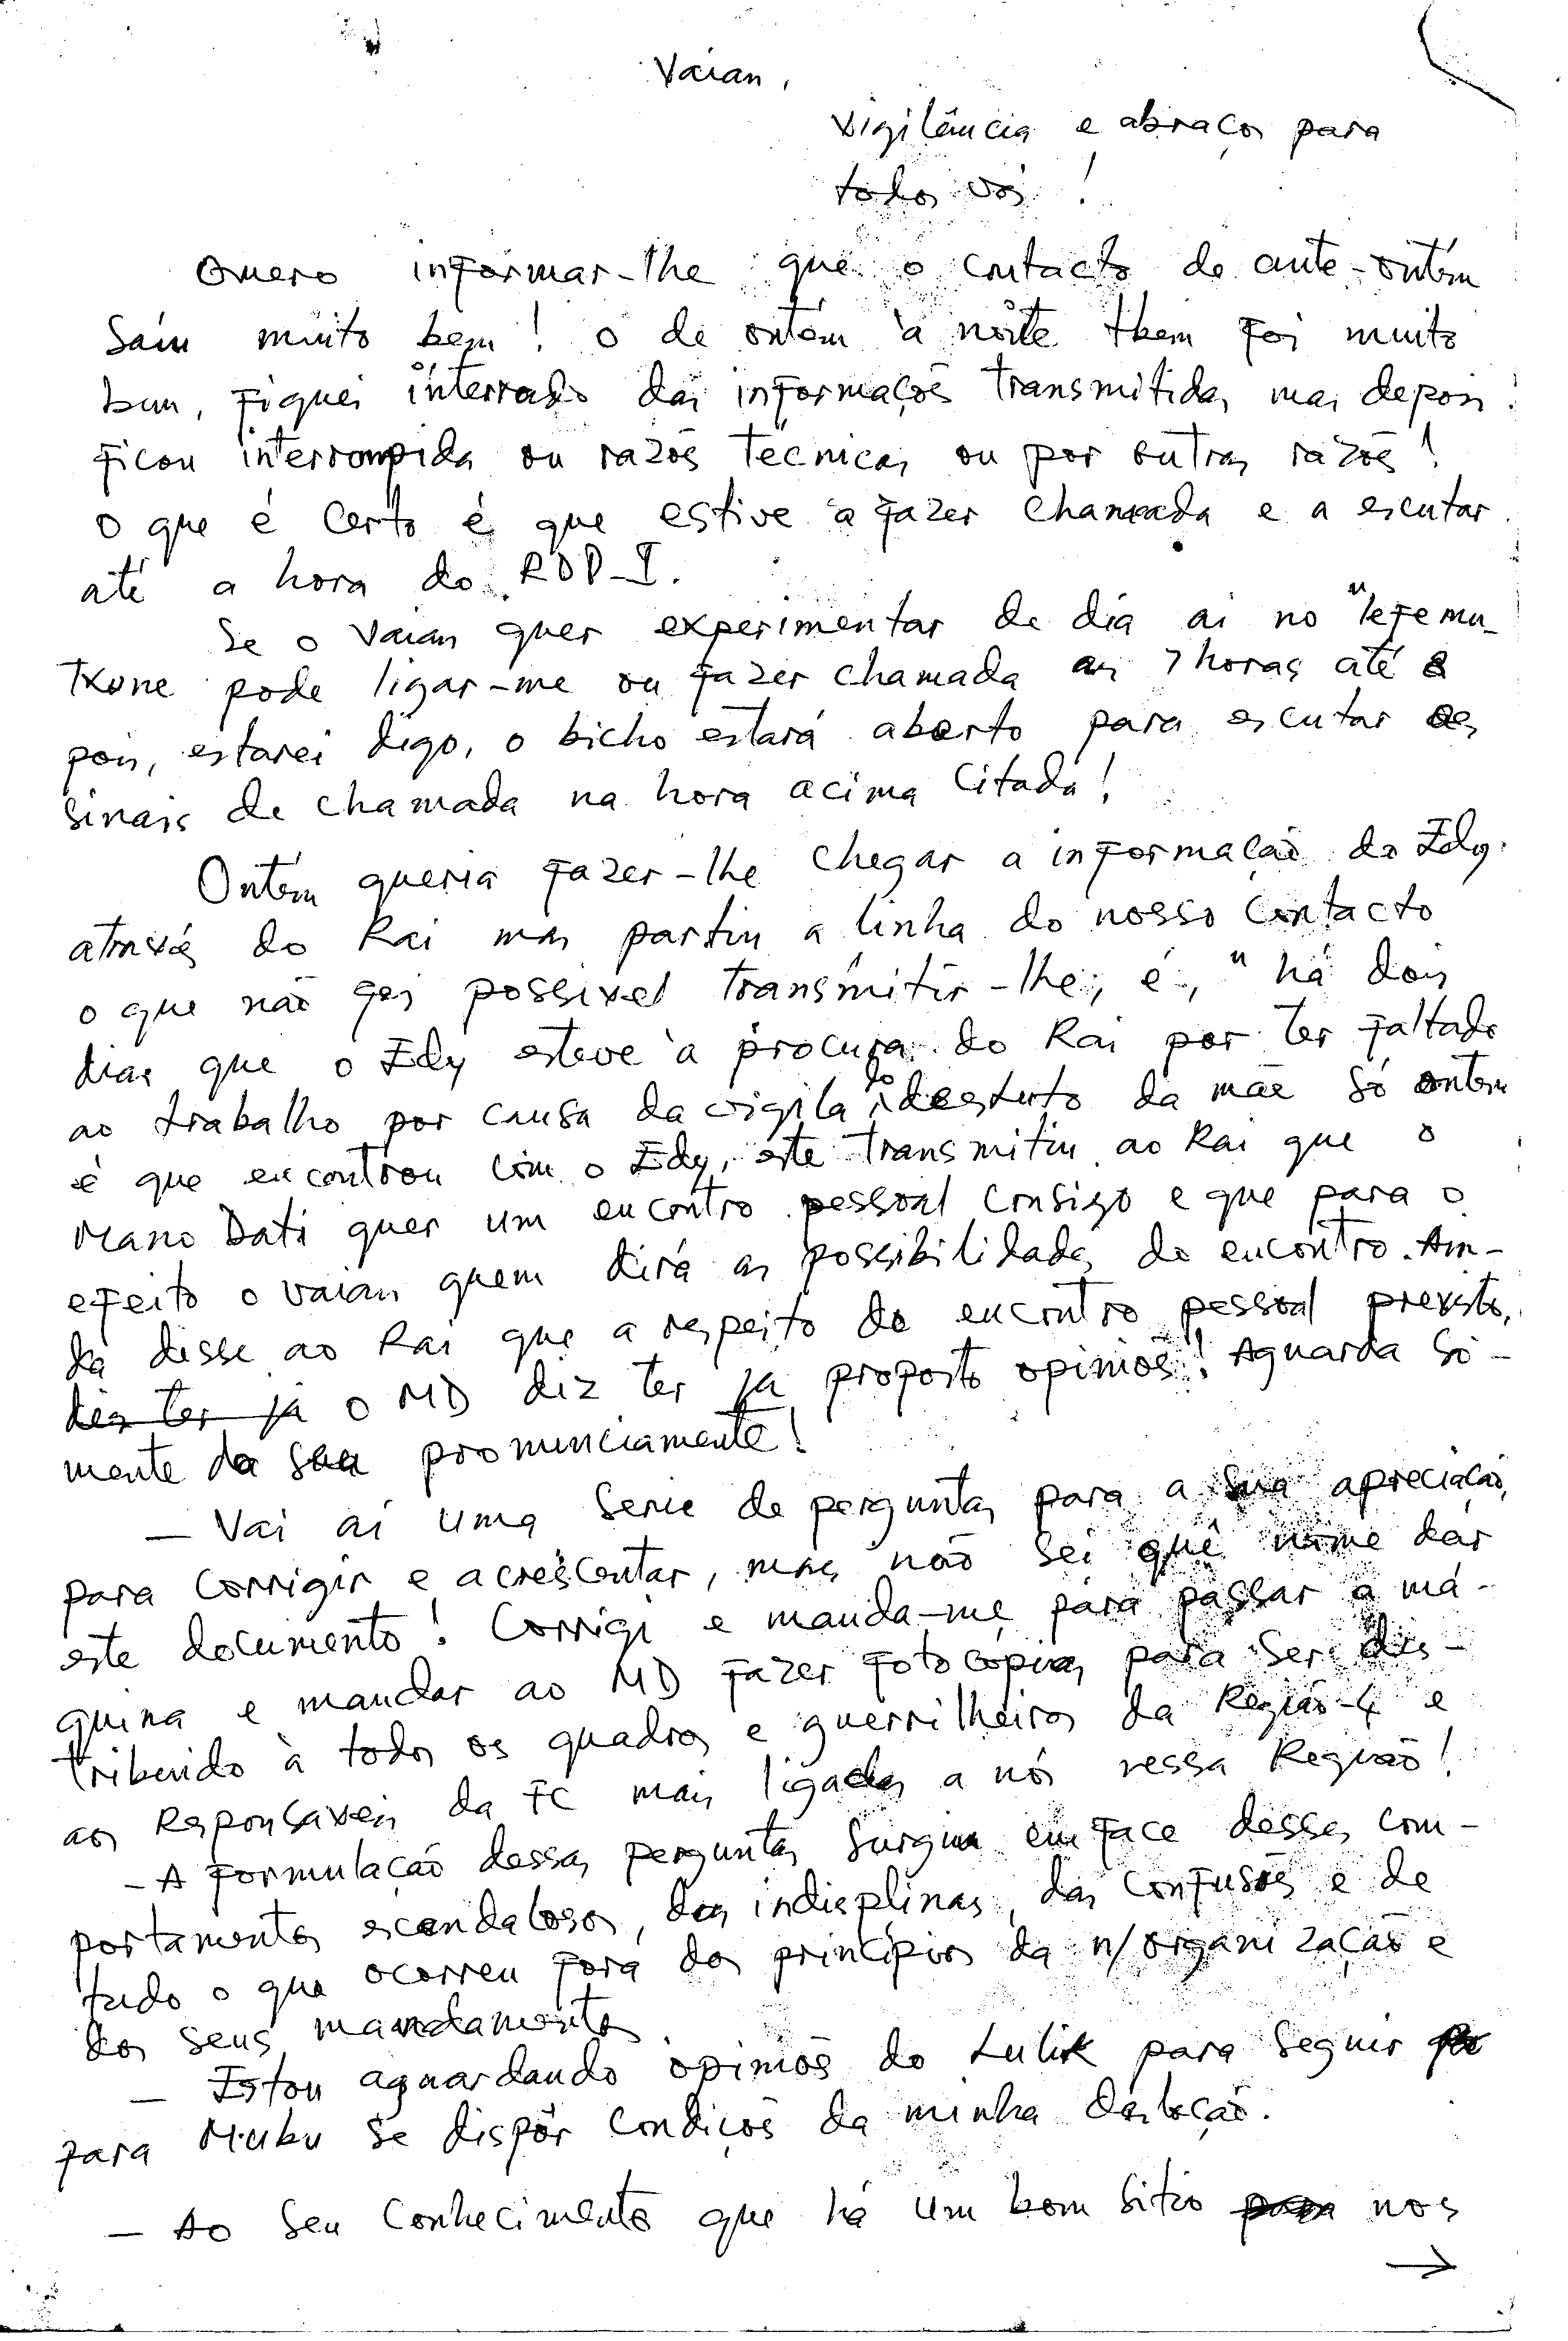 Vaian,
vigilância e abraços para
todos vós !
Quero informar-lhe que o contacto de ante-ontém
saiu muito bem ! o de ontém à noite tbem foi muito
bem, fiquei interrado das informações transmitidas mas depois
ficou interrompida ou razões técnicas ou por outras razões !
o que é certo é que estive a fazer chamada e a escutar
até a hora do RDP-I.
Se o Vaian quer experimentar de dia aí no "lefemu-
txone pode ligar-me ou fazer chamada as 7 horas até 8
pois, estarei digo, o bicho estará aberto para escutar os
sinais de chamada na hora acima citada !
Ontém queria fazer-lhe chegar a informação do Edy.
através do Rai mas partiu a linha do nosso contacto
o que não foi possivel transmitir-lhe, é, " há dois
dias que o Edy esteve à procura do Rai por ter faltado
ao trabalho por causa da vigila do da mãe só ontem
é que encontrou com o Edy, este transmitiu ao Rai que o
Mano Dati quer um encontro pessoal consigo e que para o
efeito o Vaian quem dirá as possibilidades do encontro. Ain-
da disse ao Rai que a respeito do encontro pessoal previsto,
diz ter já o MD diz ter já proposto opiniões ! Aguarda sò-
mente da sua pronunciamente !
— Vai aí uma serie de perguntas para a sua apreciação,
para corrigir e acrescentar, mas não sei quê nome dar
este documento ! Corrigi e manda-me para passar a má-
quina e mandar ao MD fazer fotocópias para ser dis-
tribuido à todos os quadros e guerrilheiros da Região-4 e
aos Responsaveis da FC mais ligados a nós nessa Região !
- A formulação dessas perguntas surgiu em face desses com-
portamentos escandalosos, das indisplinas, das confusões e de
tudo o que ocorreu fora dos princípios da n/organização e
dos seus mandamentos.
— Estou aguardando opiniões do Lulik para seguir
para Mubu se dispôr condiços da minha deslocação.
— Ao seu conhecimento que há um bom sitio para nos
→